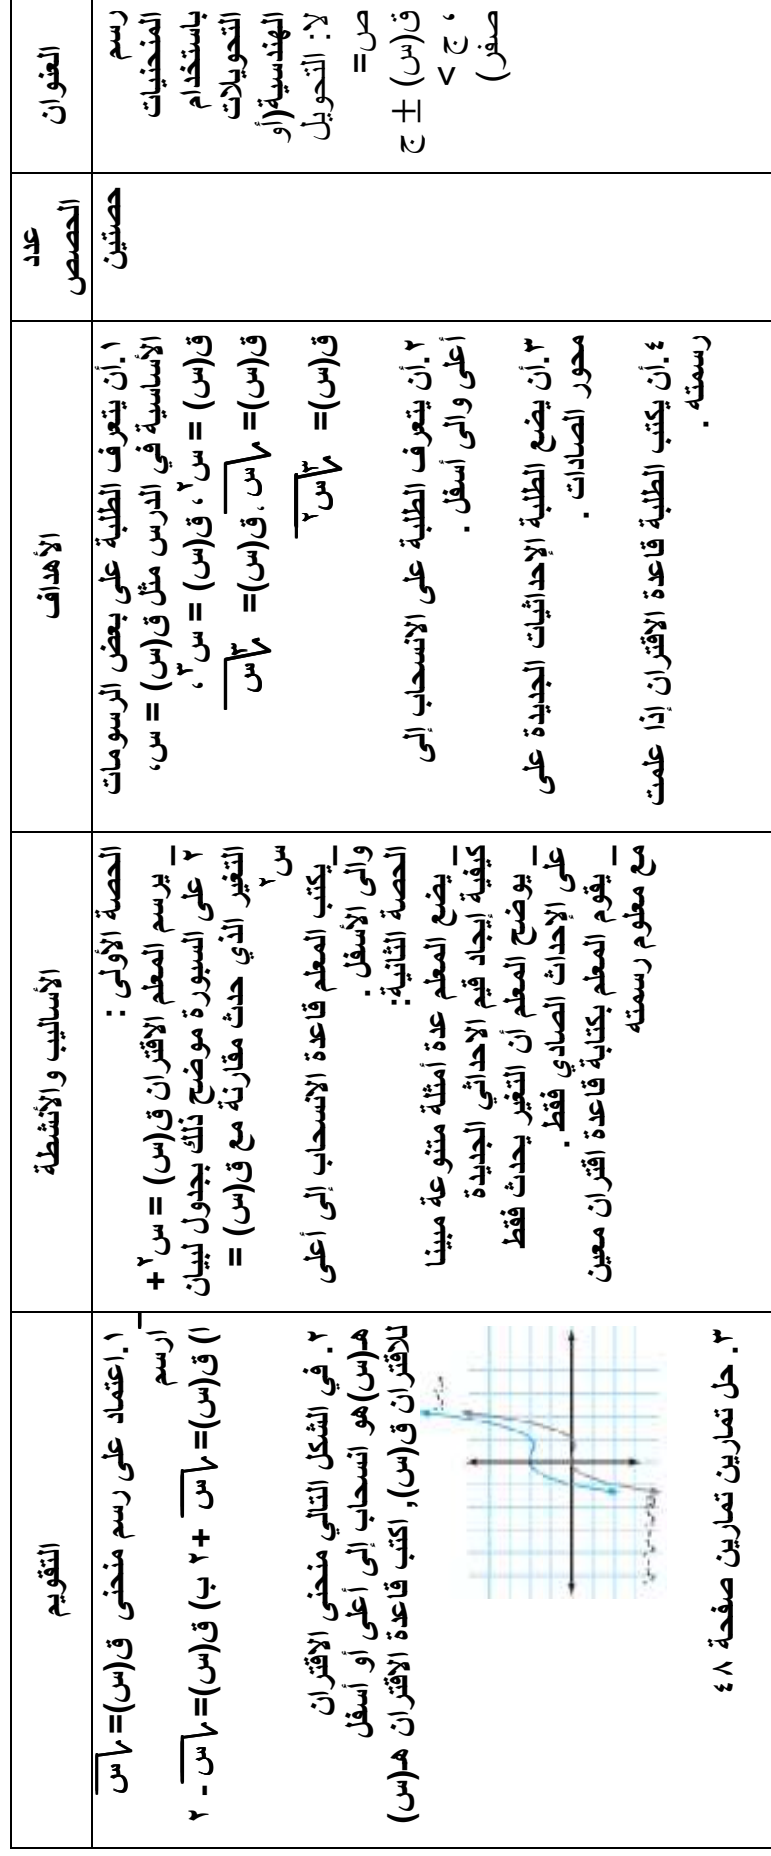 العنوان
رسم
المنحنيات
باستخدام
التحويلات
الهندسية(أو
لا: التحويل
ص=
ق(س) ± ج
، ج >
صفر)
عدد
الحصص
حصتين
الأهداف
١.أن يتعرف الطلبة على بعض الرسومات
الأساسية في الدرس مثل ق(س) = س،
ق(س) = س٢ ، ق(س) = س٣ ،
ق(س)= √س ، ق(س)= ٣√س
ق(س)= ٣√س٢
٢.أن يتعرف الطلبة على الانسحاب إلى
أعلى والى أسفل .
٣.أن يضع الطلبة الإحداثيات الجديدة على
محور الصادات .
٤.أن يكتب الطلبة قاعدة الاقتران إذا علمت
رسمته .
الأساليب والأنشطة
الحصة الأولى :
_ يرسم المعلم الاقتران ق(س) = س٢ +
٢ على السبورة موضح ذلك بجدول لبيان
التغير الذي حدث مقارنة مع ق(س) =
س٢
_ يكتب المعلم قاعدة الانسحاب إلى أعلى
والى الأسفل .
الحصة الثانية:
_ يضع المعلم عدة أمثلة متنوعة مبينا
كيفية إيجاد قيم الاحداثي الجديدة
_ يوضح المعلم أن التغير يحدث فقط
على الإحداث الصادي فقط .
_ يقوم المعلم بكتابة قاعدة اقتران معين
مع معلوم رسمته
التقويم
١.اعتماد على رسم منحنى ق(س)= √س
ارسم
ا) ق(س)= √س + ٢ ب) ق(س)= √س - ٢
٢. في الشكل التالي منحنى الاقتران
هـ(س)هو انسحاب إلى أعلى أو أسفل
للاقتران ق(س), اكتب قاعدة الاقتران هـ(س)
٣. حل تمارين تمارين صفحة ٤٨